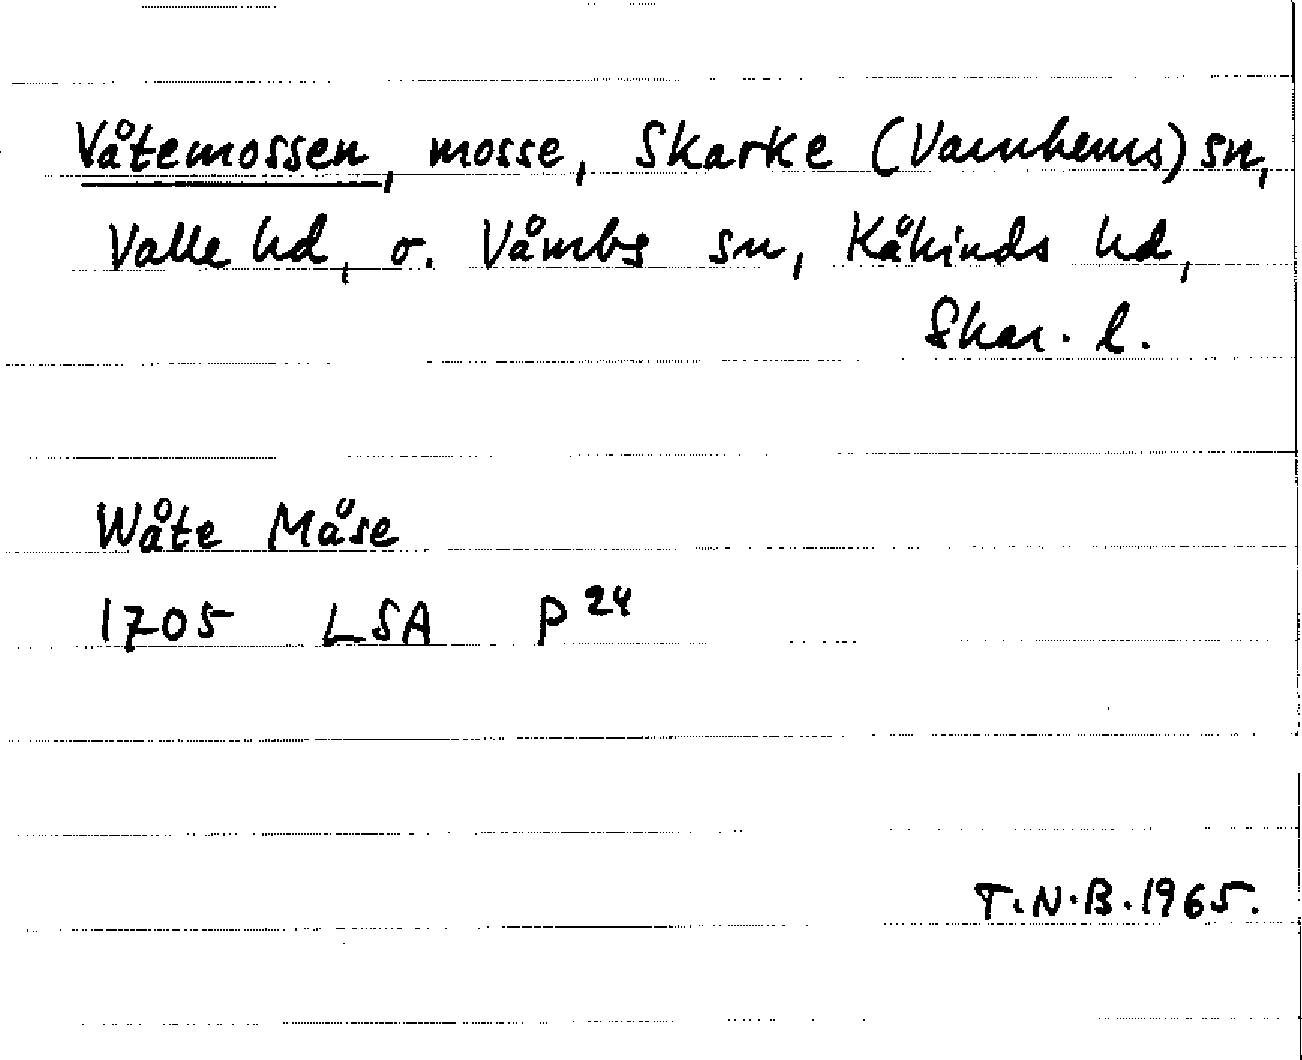 Våtemossen, mosse, Skarke (Varnhems) sn,
Valle hd, o. Våmbs sn, Kåkinds hd,
Skar. l.
Wåte Måse
1705 LSA P 24
T.N.B. 1965.